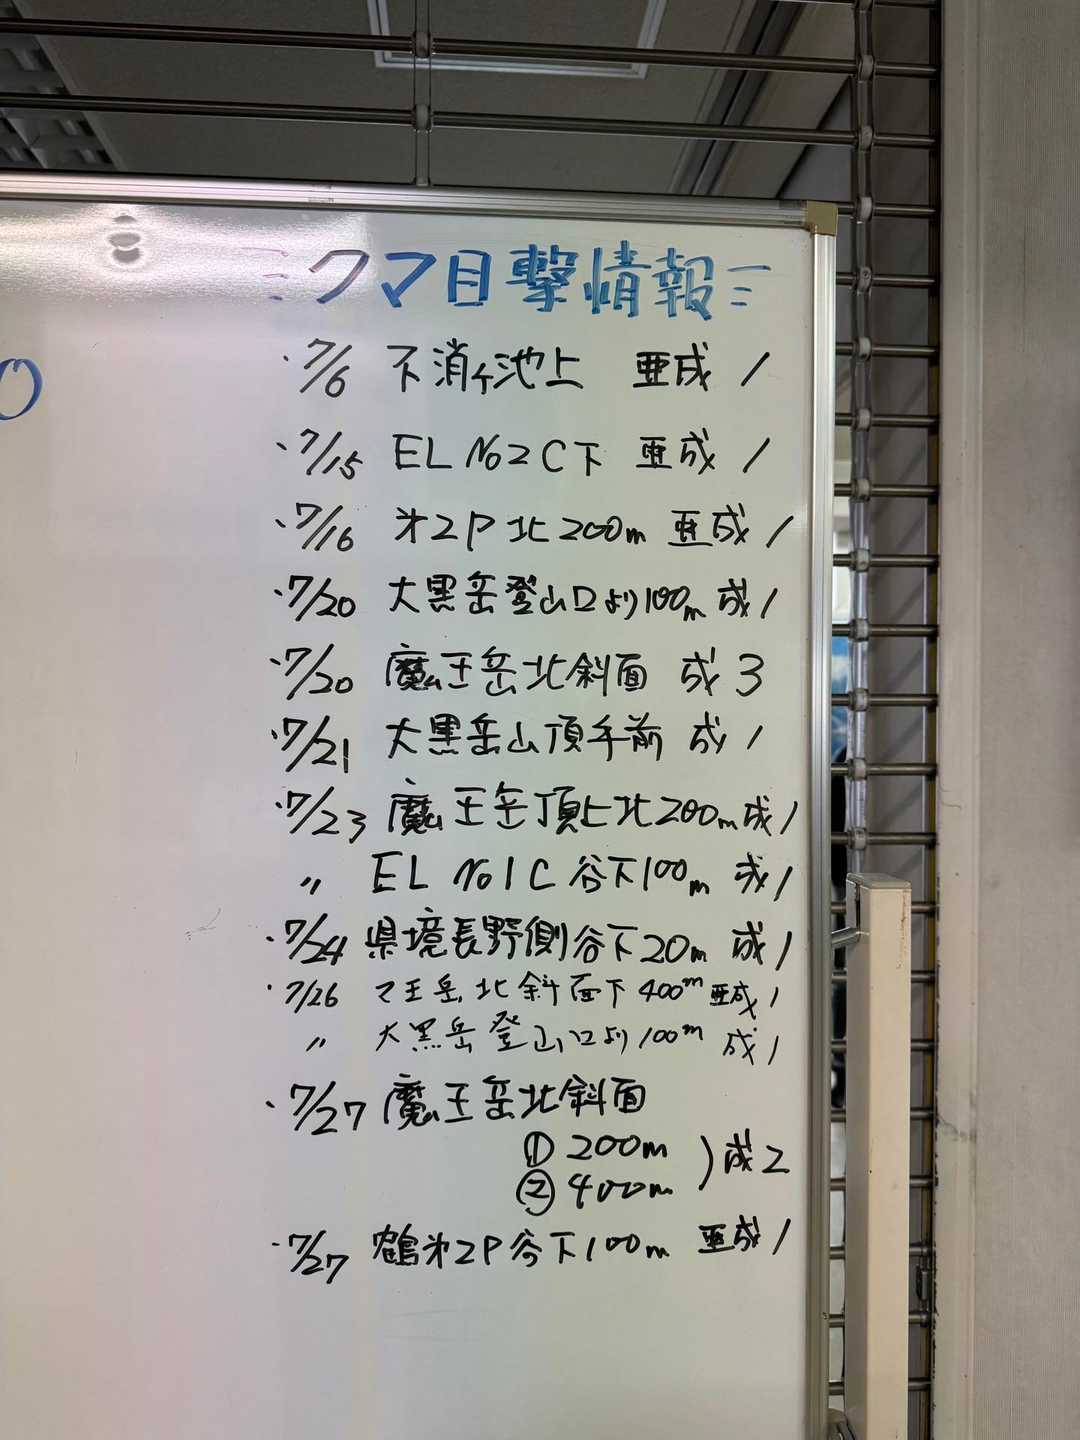 クマ目撃情報
・7/6 不消ヶ池上 亜成 1
・7/15 EL No2C下 亜成 1
・7/16 才2P北200m 亜成 1
・7/20 大黒岳登山口より100m 成 1
・7/20 魔王岳北斜面 成 3
・7/21 大黒岳山頂手前 成 1
・7/23 魔王岳頂上北200m 成 1
〃 EL No1C 谷下100m 成 1
・7/24 県境長野側谷下20m 成 1
・7/26 マ王岳北斜面下400m 亜成 1
〃 大黒岳登山口より100m 成 1
・7/27 魔王岳北斜面
① 200m
② 400m ）成 2
・7/27 鶴才2P谷下100m 亜成 1